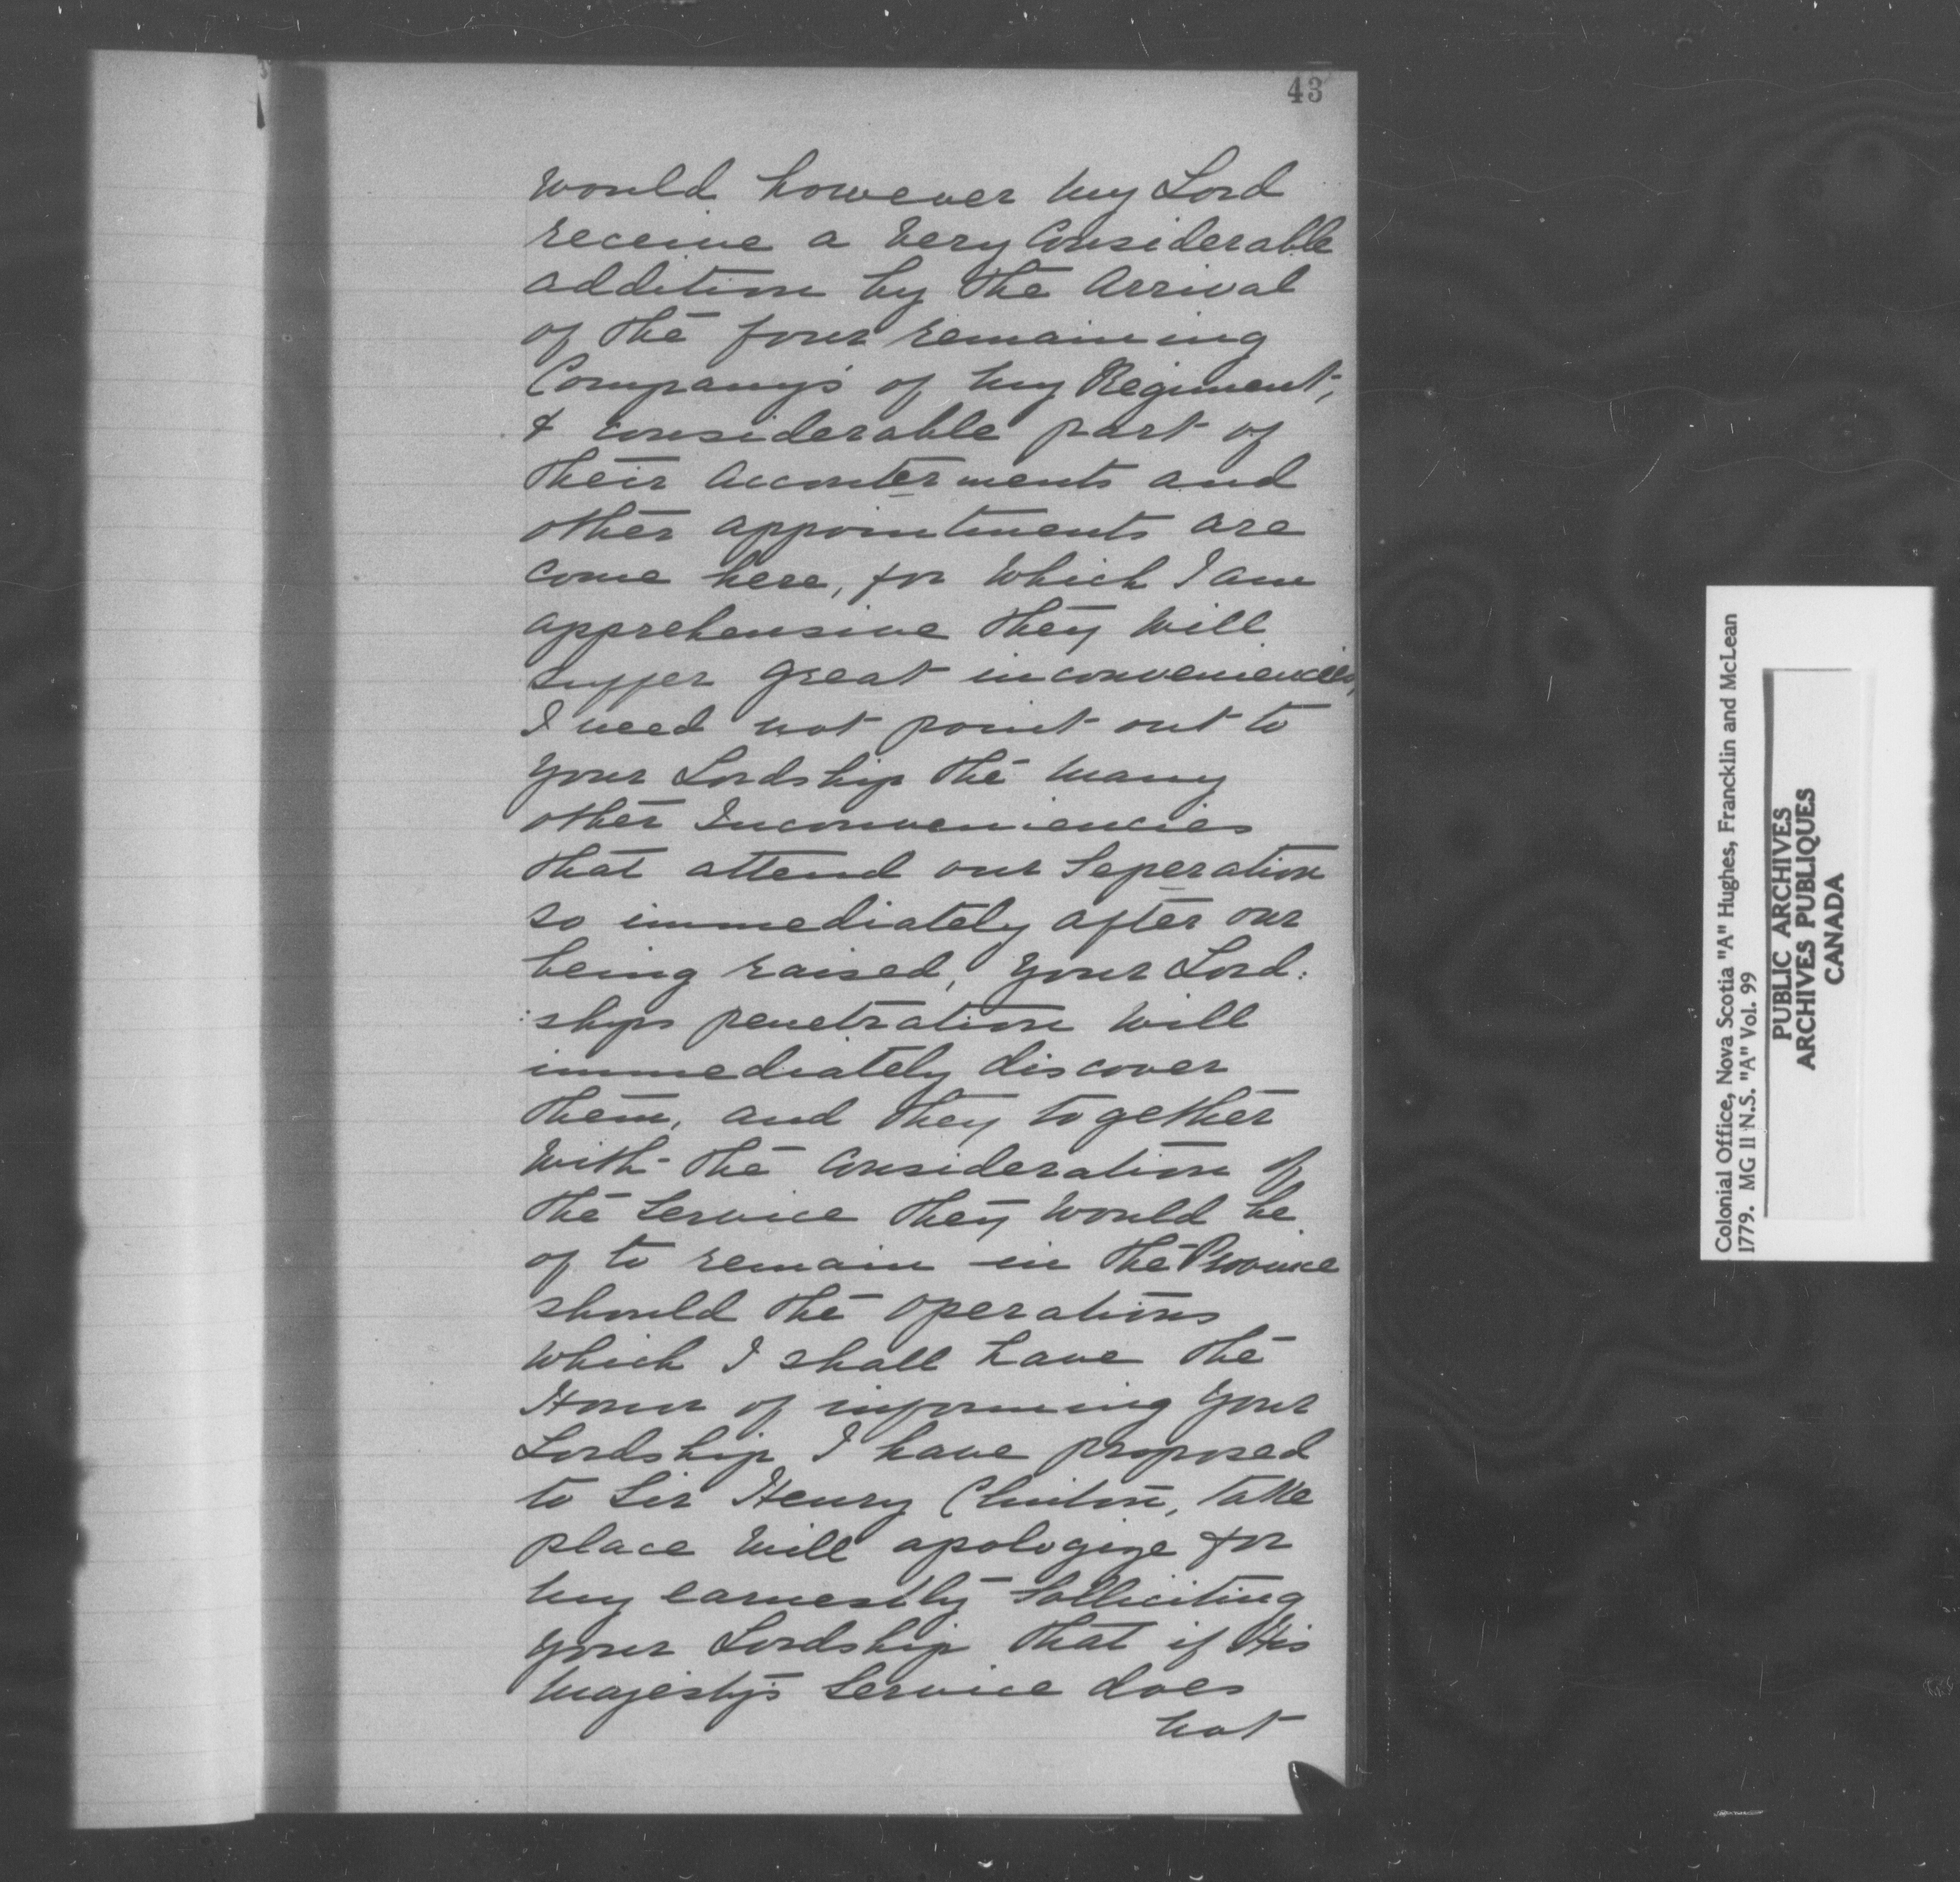 43
would however my Lord
receive a Very Considerable
addition by the Arrival
of the four remaining
Company's of my Regiment,
& considerable part of
their Accouterments and
other appointments are
come here, for Which I am
apprehensive they Will
suffer great inconveniencies,
I need not point out to
your Lordship the Many
other Inconveniencies
that attend our Seperation
so immediately after our
being raised, Your Lord:
:ships penetration Will
immediately discover
them, and they together
With the Consideration of
the Service they Would be
of to remain in the Province
should the Operations
Which I shall have the
Honor of informing Your
Lordship I have proposed
to Sir Henry Clinton, take
place Will apologize for
my earnestly Solliciting
your Lordship that if His
Majesty's Service does
not
Colonial Office, Nova Scotia "A" Hughes, Francklin and McLean
1779. MG 11 N.S. "A" Vol. 99
PUBLIC ARCHIVES
ARCHIVES PUBLIQUES
CANADA